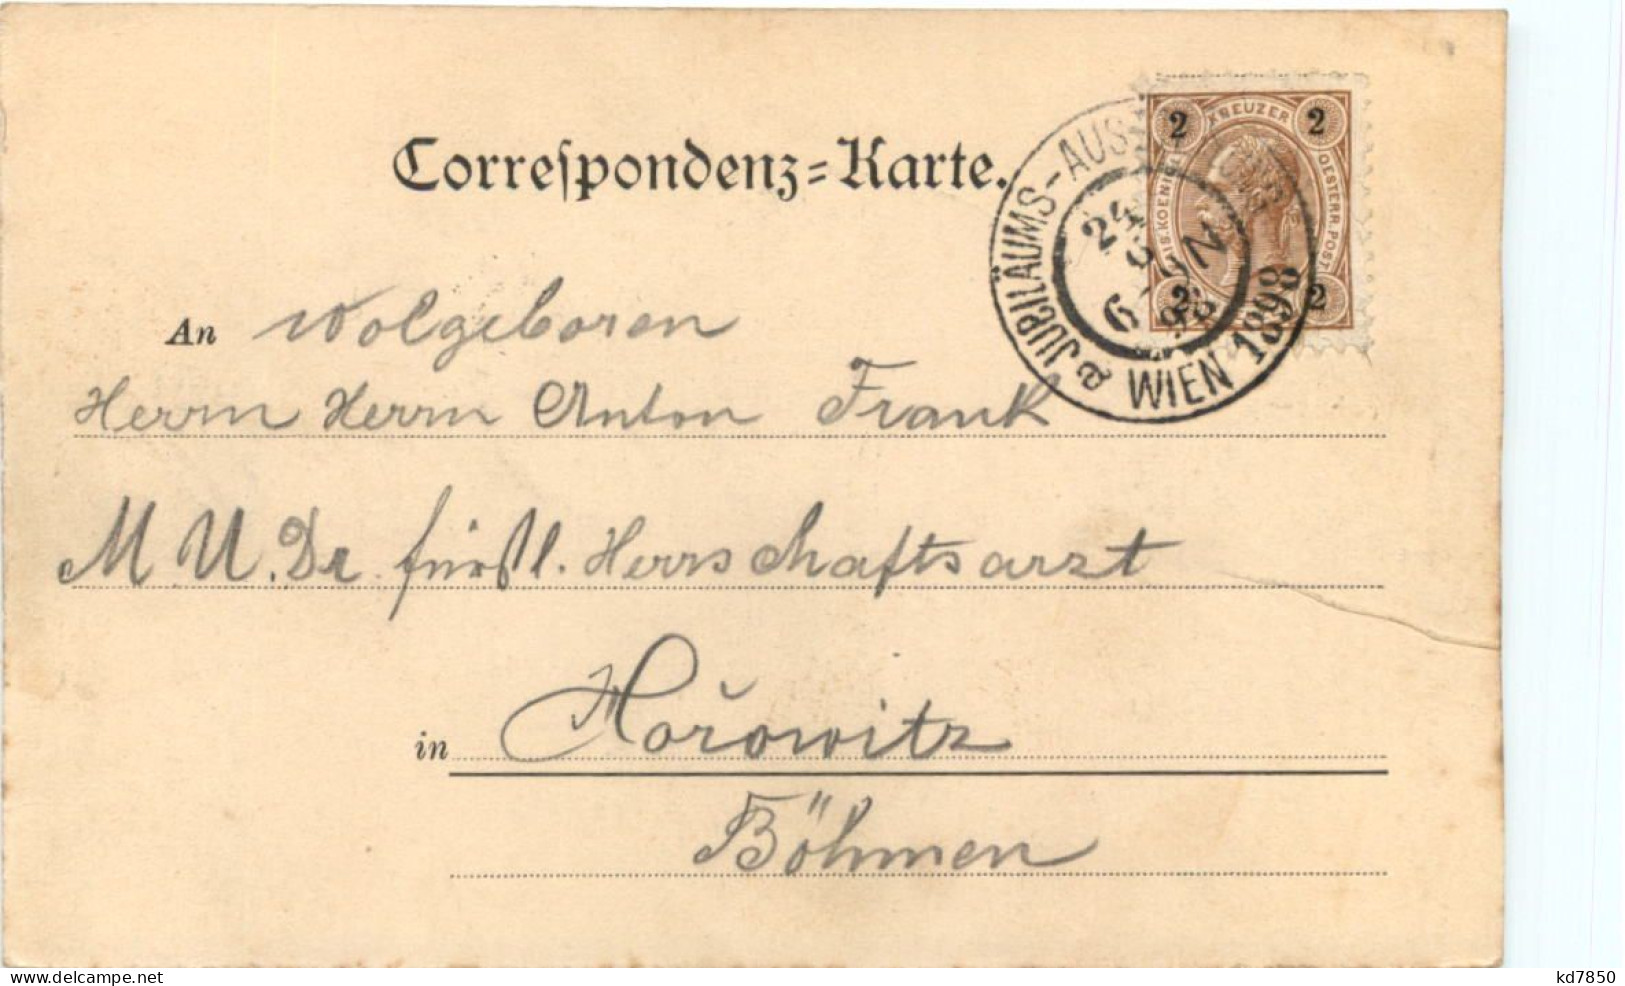 Correſpondenz=Karte.
2 KREUZER 2
OESTERR. POST
2 2
JUBILÄUMS-AUS
24
6 N
98
a WIEN 1898
An Wolgeboren
Herrn Herrn Anton Frank
M. U. Dr. fürstl. Herrschaftsarzt
in Hořowitz
Böhmen
www.delcampe.net
kd7850